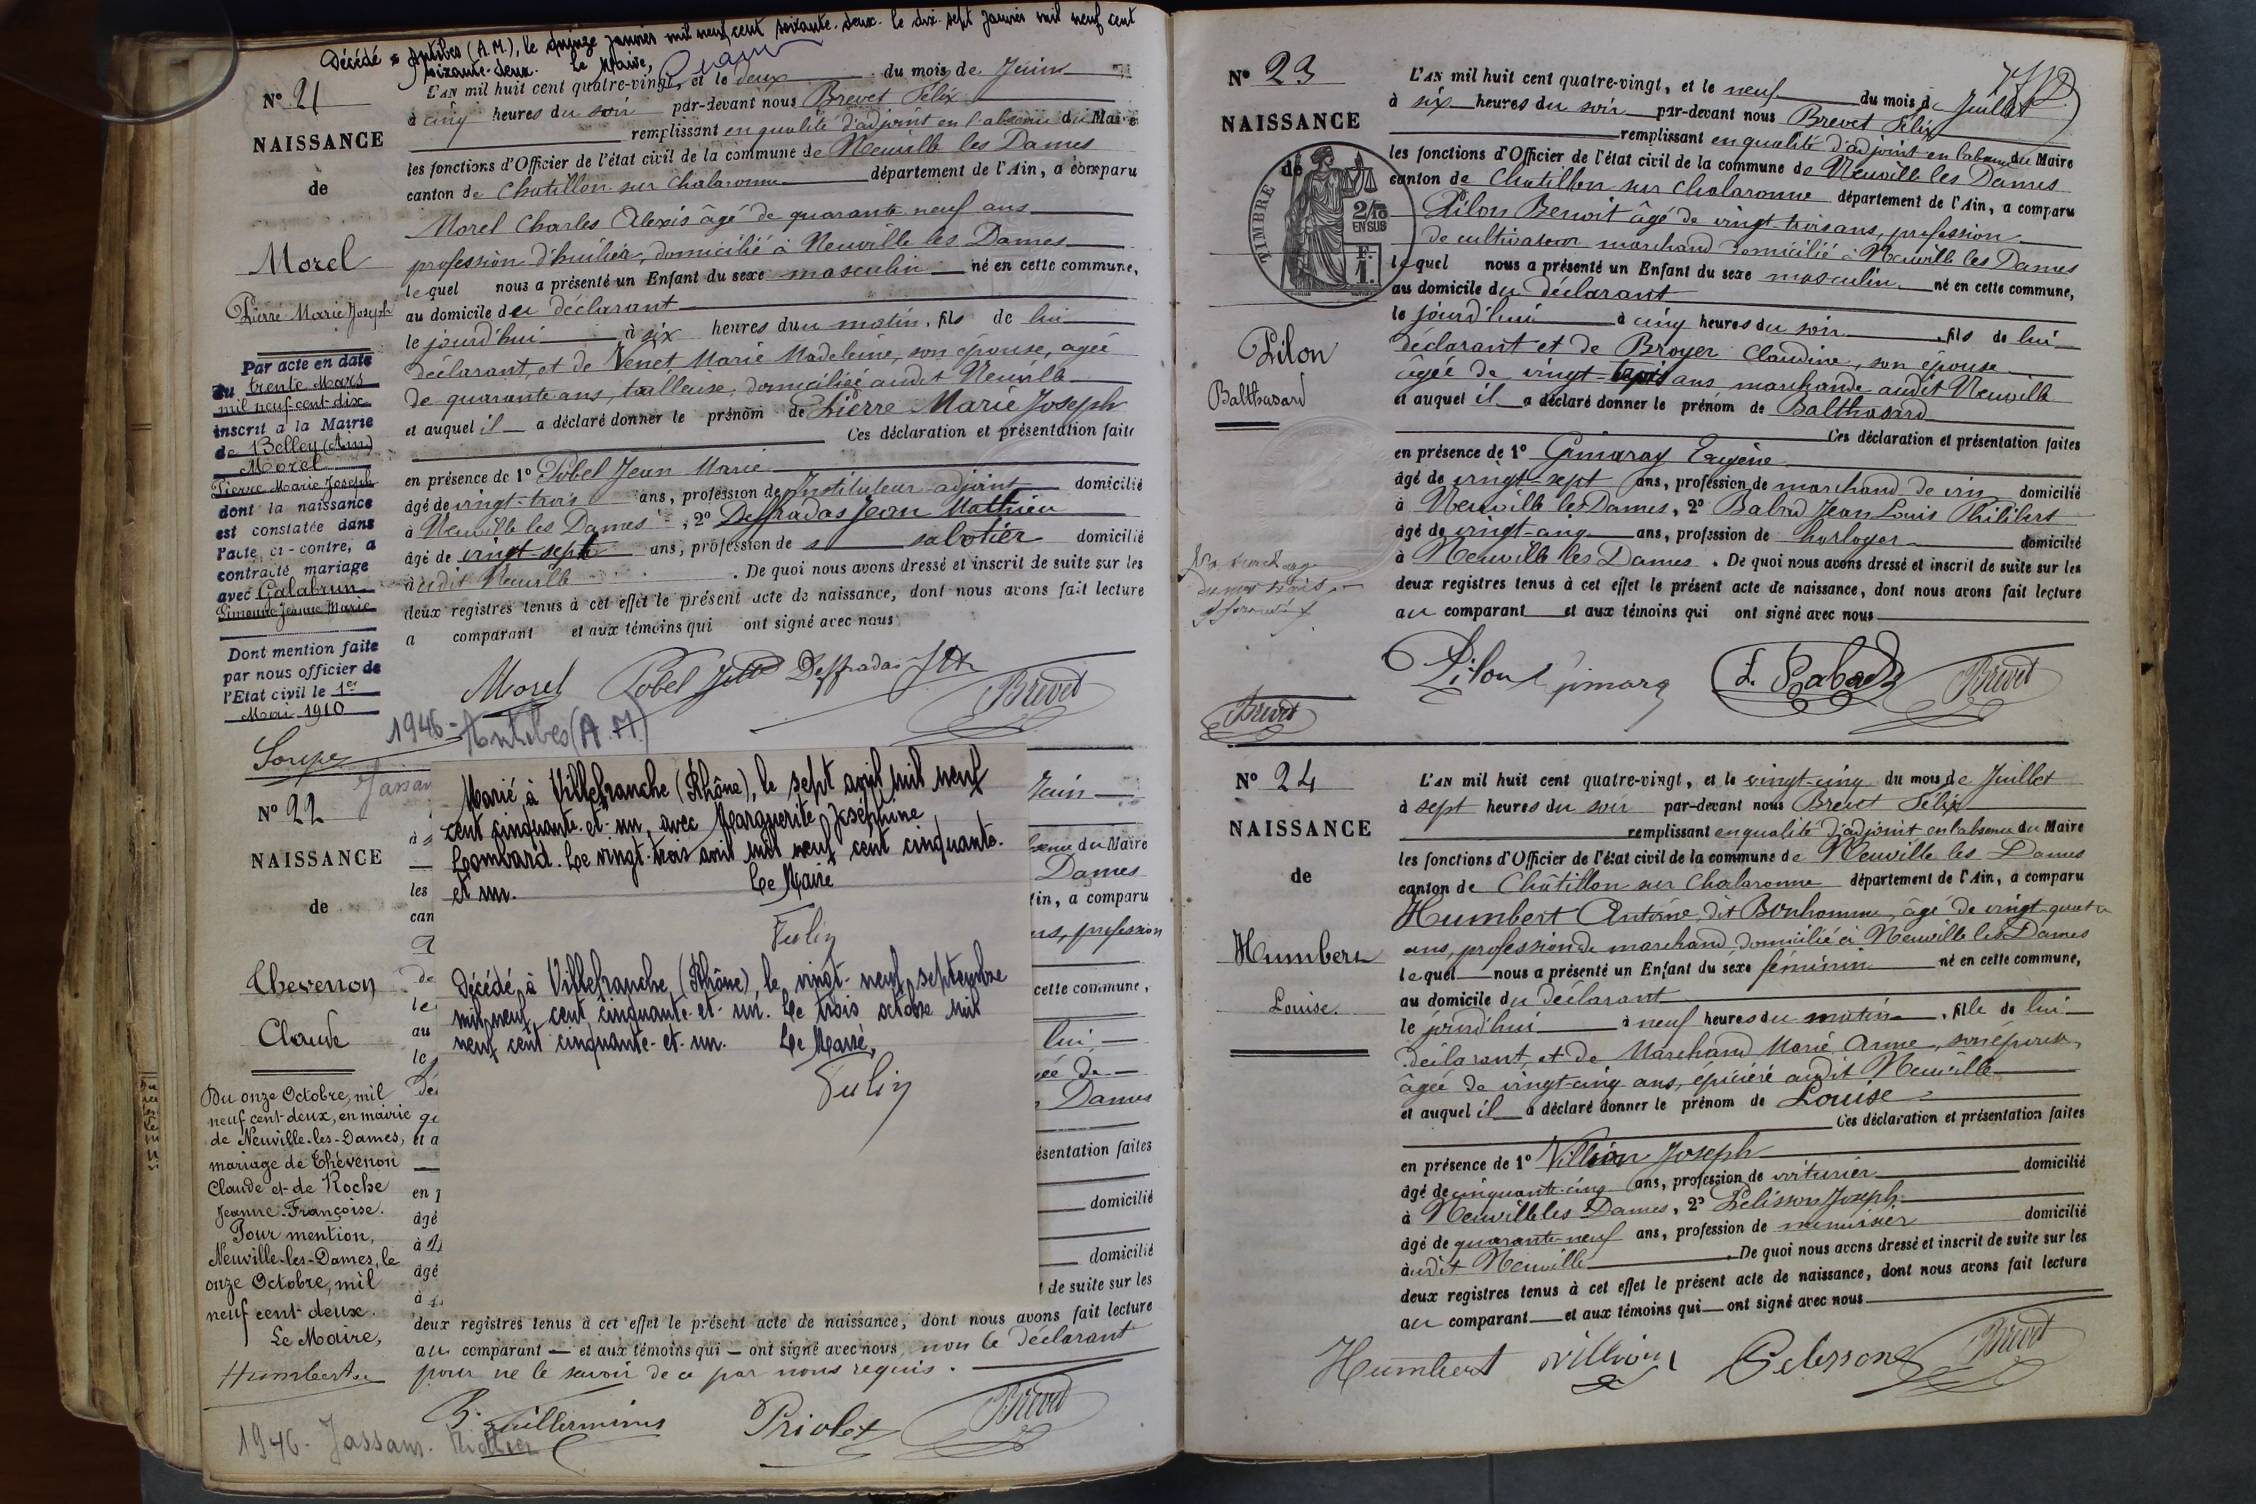 Décédé à Antibes (A.M.), le quinze janvier mil neuf cent soixante-deux. le dix sept janvier mil neuf cent
soixante-deux. Le Maire,
N° 21
NAISSANCE
de
Morel
Pierre Marie Joseph
Par acte en date
du trente Mars
mil neuf cent dix
inscrit à la Mairie
de Belley (Ain)
Morel
Pierre Marie Joseph
dont la naissance
est constatée dans
l'acte ci-contre, a
contracté mariage
avec Galabrun
Simonne Jeanne Marie
Dont mention faite
par nous officier de
l'Etat civil le 1er
Mai 1910
L'AN mil huit cent quatre-vingt, et le deux du mois de Juin
à cinq heures du soir par-devant nous Brevet Félix
remplissant en qualité d'adjoint en l'absence du Maire
les fonctions d'Officier de l'état civil de la commune de Neuville les Dames
canton de Chatillon sur Chalaronne département de l'Ain, a comparu
Morel Charles Alexis âgé de quarante neuf ans
profession d'huilier, domicilié à Neuville les Dames
lequel nous a présenté un Enfant du sexe masculin né en cette commune,
au domicile du déclarant
le jourd'hui à six heures du matin, fils de lui
déclarant, et de Venet Marie Madeleine, son épouse, agée
de quarante ans, tailleuse, domiciliée audit Neuville
et auquel il a déclaré donner le prénom de Pierre Marie Joseph
Ces déclaration et présentation faites
en présence de 1° Pobel Jean Marie
âgé de vingt-trois ans, profession de Instituteur adjoint domicilié
à Neuville les Dames, 2° Deffradas Jean Mathieu
âgé de vingt-sept ans, profession de sabotier domicilié
audit Neuville. De quoi nous avons dressé et inscrit de suite sur les
deux registres tenus à cet effet le présent acte de naissance, dont nous avons fait lecture
a comparant et aux témoins qui ont signé avec nous
Morel Pobel Deffradas Brevet
1946 - Antibes (A.M)
N° 22
NAISSANCE
de
Thevenon
Claude
Du onze Octobre, mil
neuf cent-deux, en mairie
de Neuville-les-Dames,
mariage de Thévenon
Claude et de Roche
Jeanne-Françoise.
Pour mention,
Neuville-les-Dames, le
onze Octobre, mil
neuf cent deux.
Le Maire,
Humbert
Marié à Villefranche (Rhône), le sept avril mil neuf
cent cinquante-et-un, avec Marguerite Joséphine
Lombard. Le vingt-trois avril mil neuf cent cinquante-
et un. Le Maire
Décédé à Villefranche (Rhône), le vingt-neuf septembre
mil neuf cent cinquante-et-un. Le trois octobre mil
neuf cent cinquante-et-un. Le Maire,
Juin
du Maire
Dames
a comparu
profession
cette commune,
lui,
Dames
domicilié
domicilié
de suite sur les
deux registres tenus à cet effet le présent acte de naissance, dont nous avons fait lecture
au comparant et aux témoins qui ont signé avec nous, non le déclarant
pour ne le savoir de ce par nous requis.
Priolet Brevet
1946 - Jassans Riottier
N° 23
NAISSANCE
de
TIMBRE
2/10
EN SUS
F.
1.
Pilon
Balthasard
L'AN mil huit cent quatre-vingt, et le neuf du mois de Juillet
à six heures du soir par-devant nous Brevet Félix
remplissant en qualité d'adjoint en l'absence du Maire
les fonctions d'Officier de l'état civil de la commune de Neuville les Dames
canton de Chatillon sur Chalaronne département de l'Ain, a comparu
Pilon Benoit âgé de vingt trois ans, profession
de cultivateur marchand domicilié à Neuville les Dames
lequel nous a présenté un Enfant du sexe masculin né en cette commune,
au domicile du déclarant
le jourd'hui à cinq heures du soir, fils de lui
déclarant et de Broyer Claudine, son épouse
âgée de vingt-trois ans marchande audit Neuville
et auquel il a déclaré donner le prénom de Balthasard
Ces déclaration et présentation faites
en présence de 1° Gimaray Eugène
âgé de vingt-sept ans, profession de marchand de vin domicilié
à Neuville les Dames, 2° Jean Louis Philibert
âgé de vingt-cinq ans, profession de horloger domicilié
à Neuville les Dames. De quoi nous avons dressé et inscrit de suite sur les
deux registres tenus à cet effet le présent acte de naissance, dont nous avons fait lecture
au comparant et aux témoins qui ont signé avec nous
Pilon Brevet
Brevet
N° 24
NAISSANCE
de
Humbert
Louise
L'AN mil huit cent quatre-vingt, et le vingt-cinq du mois de Juillet
à sept heures du soir par-devant nous Brevet Félix
remplissant en qualité d'adjoint en l'absence du Maire
les fonctions d'Officier de l'état civil de la commune de Neuville les Dames
canton de Châtillon sur Chalaronne département de l'Ain, a comparu
Humbert Antoine, dit Bonhomme, âgé de vingt-quatre
ans, profession de marchand domicilié à Neuville les Dames
lequel nous a présenté un Enfant du sexe féminin né en cette commune,
au domicile du déclarant
le jourd'hui à neuf heures du matin, fille de lui
déclarant, et de Marchand Marie Anne, son épouse,
âgée de vingt-cinq ans, épicière audit Neuville
et auquel il a déclaré donner le prénom de Louise
Ces déclaration et présentation faites
en présence de 1° Villion Joseph
âgé de cinquante-cinq ans, profession de voiturier domicilié
à Neuville les Dames, 2° Pelisson Joseph
âgé de quarante-neuf ans, profession de menuisier domicilié
audit Neuville. De quoi nous avons dressé et inscrit de suite sur les
deux registres tenus à cet effet le présent acte de naissance, dont nous avons fait lecture
au comparant et aux témoins qui ont signé avec nous
Humbert Villion Pelisson Brevet